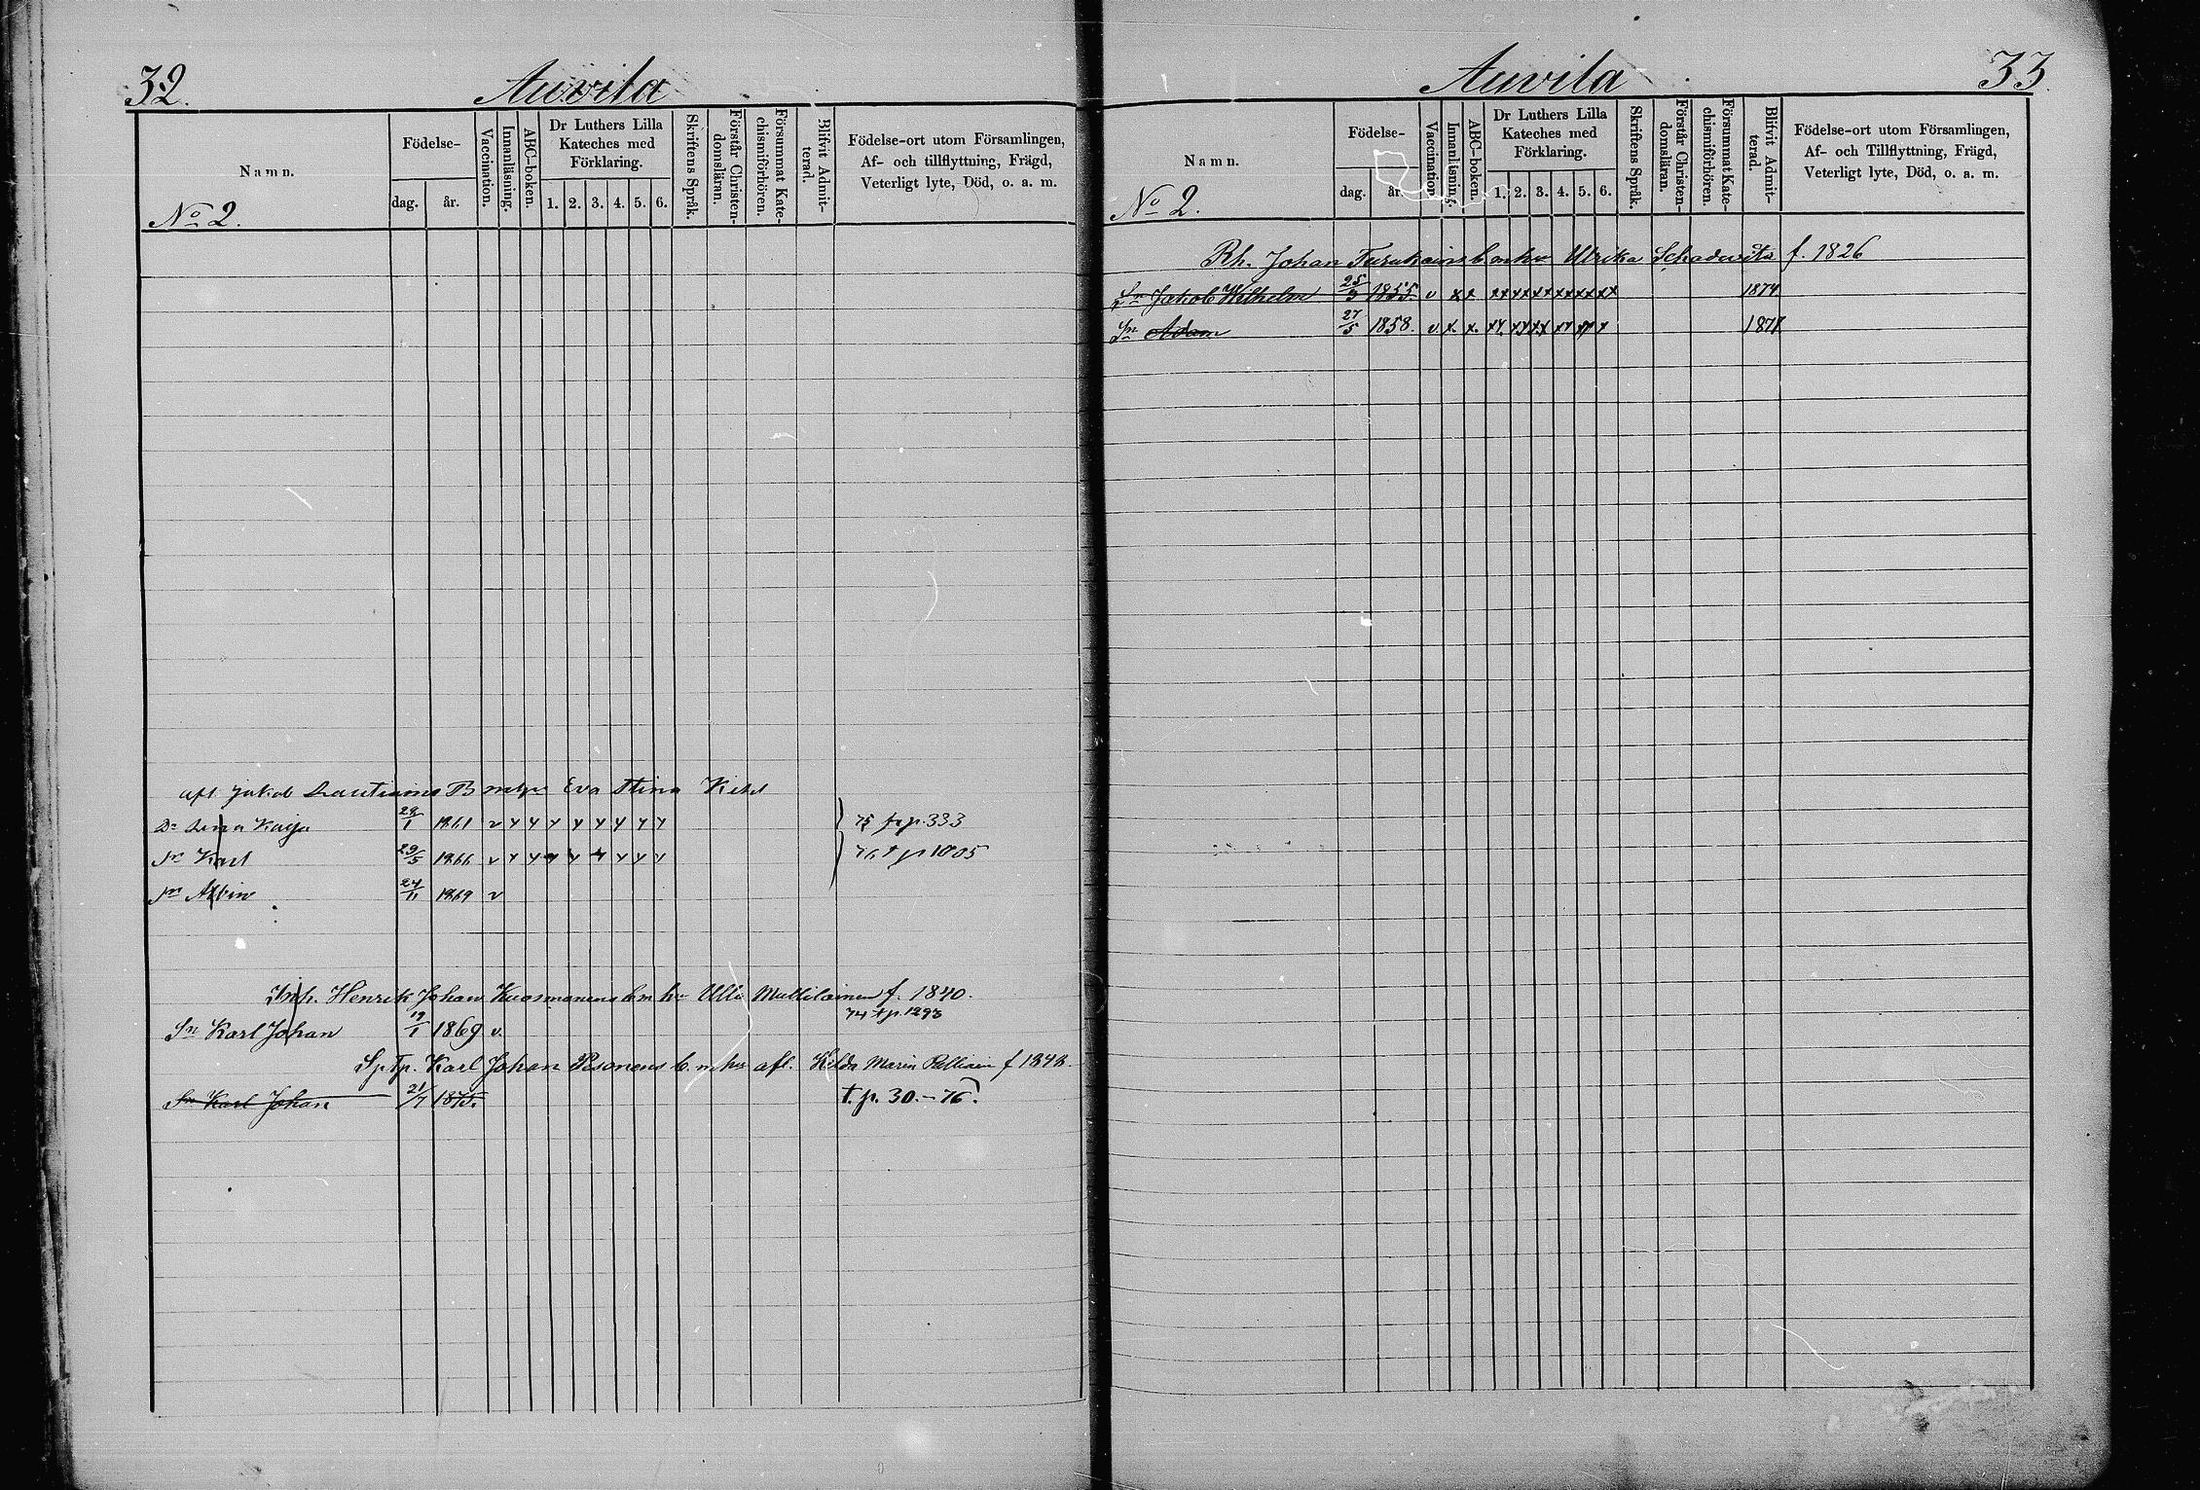 32.
Auvila
Namn.
Födelse-
dag.
år.
Vaccination.
Innanläsning.
ABC-boken.
Dr Luthers Lilla
Kateches med
Förklaring.
1. 2. 3. 4. 5. 6.
Skriftens Språk.
Förstår Christen-
domsläran.
Försummat Kate-
chismiförhören.
Blifvit Admit-
terad.
Födelse-ort utom Församlingen,
Af- och tillflyttning, Frägd,
Veterligt lyte, Död, o. a. m.
No 2.
afl Jakob B Eva Stina
Dr Lena Kaija 29/1 1861 v
Sn Karl 29/5 1866 v
Sn Albin 24/11 1869 v
75 p. 333
76 t p 1805
Inh. Henrik Johan Kuosmanens b m hu Ulla Multilainen f. 1840.
74 t p. 1293
Sn Karl Johan 19/1 1869 v.
Karl Johan Pesonens b. m. hu afl. Hilda Maria f 1848.
Sn Karl Johan 21/7 1875.
t. p. 30. - 76.
33.
Auvila
Namn.
Födelse-
dag.
år.
Vaccination.
Innanläsning.
ABC-boken.
Dr Luthers Lilla
Kateches med
Förklaring.
1. 2. 3. 4. 5. 6.
Skriftens Språk.
Förstår Christen-
domsläran.
Försummat Kate-
chismiförhören.
Blifvit Admit-
terad.
Födelse-ort utom Församlingen,
Af- och Tillflyttning, Frägd,
Veterligt lyte, Död, o. a. m.
No 2.
Rh. Johan Turukains b m hu Ulrika Schadewitz f. 1826
Sn Jakob Wilhelm 25/3 1855. v x x xx xx xx xx xx xx 1874
Sn Adam 27/5 1858. v x. x. 1877